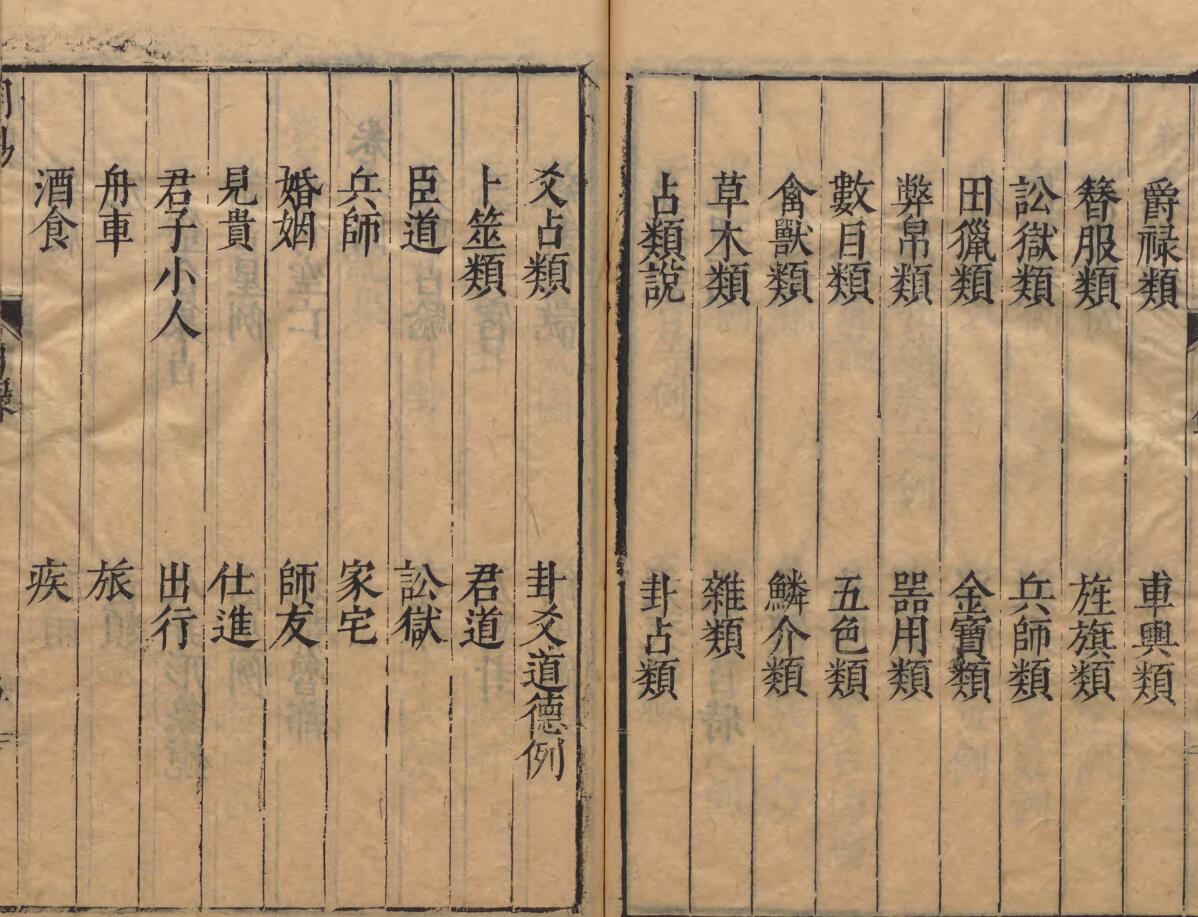 爵禄類 車輿類
簪服類 旌旗類
訟獄類 兵師類
田獵類 金寶類
弊帛類 器用類
數目類 五色類
禽獸類 鱗介類
草木類 雜類
占類說 卦占類
爻占類 卦爻道德例
卜筮類 君道
臣道 訟獄
兵師 家宅
婚姻 師友
見貴 仕進
君子小人 出行
舟車 旅
酒食 疾